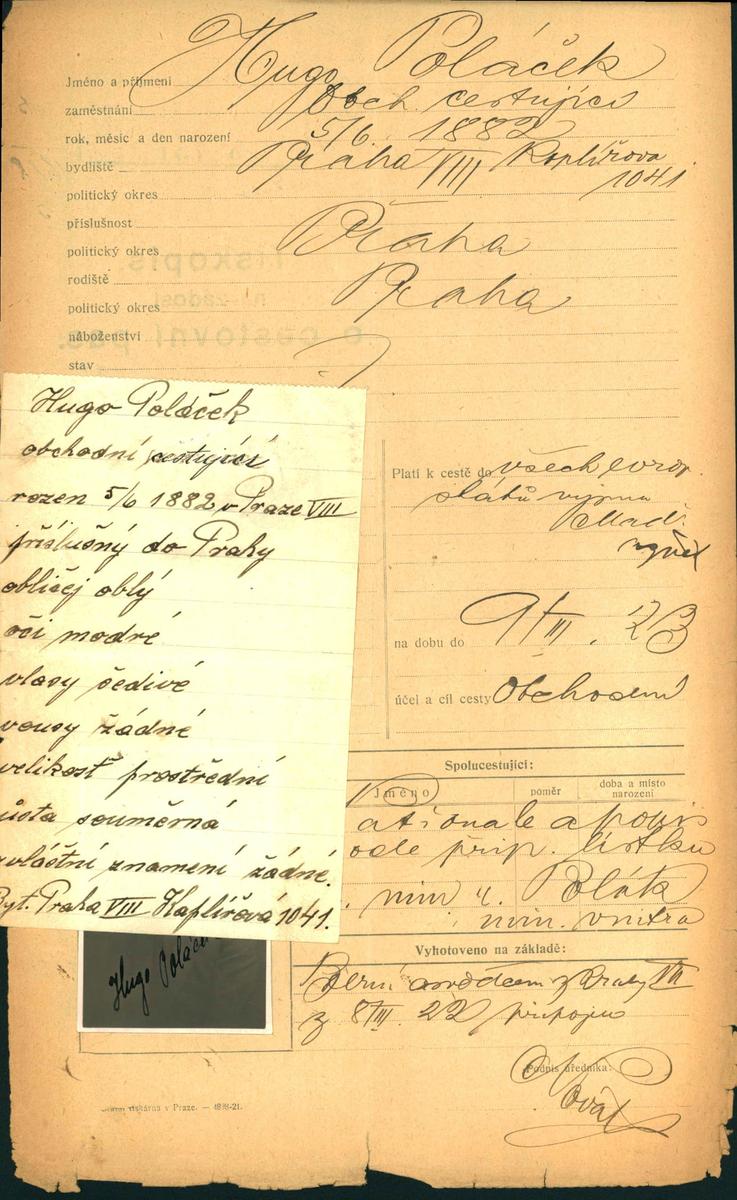 Jméno a příjmení Hugo Poláček
zaměstnání obch. cestující
rok, měsíc a den narození 5/6 1882
bydliště Praha VIII Kaplířova
1041
politický okres
příslušnost
politický okres Praha
rodiště
politický okres Praha
náboženství
stav
Hugo Poláček
obchodní cestující
rozen 5/6 1882 v Praze VIII
příslušný do Prahy
obličej oblý
oči modré
vlasy šedivé
vousy žádné
velikost prostřední
ústa souměrná
zvláštní znamení žádné.
Byt. Praha VIII Kaplířová 1041.
Hugo Poláček
Platí k cestě do všech evrop.
států vyjma
Maď.
na dobu do 9/III. 23
účel a cíl cesty Obchodní
Spolucestující:
Jméno poměr doba a místo narození
ationale a popis
ode přip. lístku
min. vnitra
Vyhotoveno na základě:
Berní z Prahy VII
z 8/III. 22 připoju
Podpis úředníka:
tiskárna v Praze. — 1898-21.